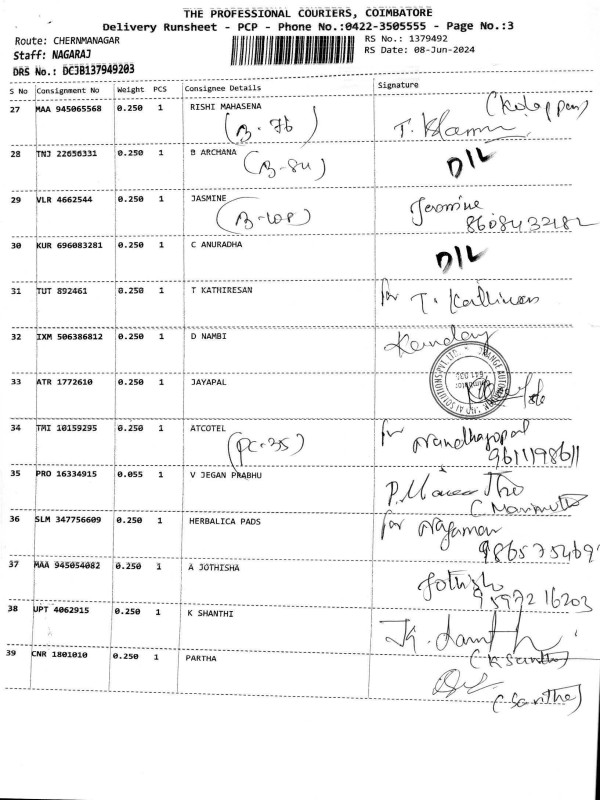 THE PROFESSIONAL COURIERS, COIMBATORE
Delivery Runsheet - PCP - Phone No.:0422-3505555 - Page No.:3
Route: CHERNMANAGAR
RS No.: 1379492
Staff: NAGARAJ
RS Date: 08-Jun-2024
DRS No.: DCJB137949203
S No Consignment No Weight PCS Consignee Details Signature
27 MAA 945065568 0.250 1 RISHI MAHASENA
(B-76)
28 TNJ 22656331 0.250 1 B ARCHANA D/L
(B-84)
29 VLR 4662544 0.250 1 JASMINE
86084332182
30 KUR 696083281 0.250 1 C ANURADHA D/L
31 TUT 892461 0.250 1 T KATHIRESAN for T.
32 IXM 506386812 0.250 1 D NAMBI
33 ATR 1772610 0.250 1 JAYAPAL
34 TMI 10159295 0.250 1 ATCOTEL for Nandhagopal
(PC-35) 9611198611
35 PRO 16334915 0.055 1 V JEGAN PRABHU P.
36 SLM 347756609 0.250 1 HERBALICA PADS for
986575469
37 MAA 945054082 0.250 1 A JOTHISHA Jothisha
9597216203
38 UPT 4062915 0.250 1 K SHANTHI K.
(K Santhi)
39 CNR 1801010 0.250 1 PARTHA
(Saritha)